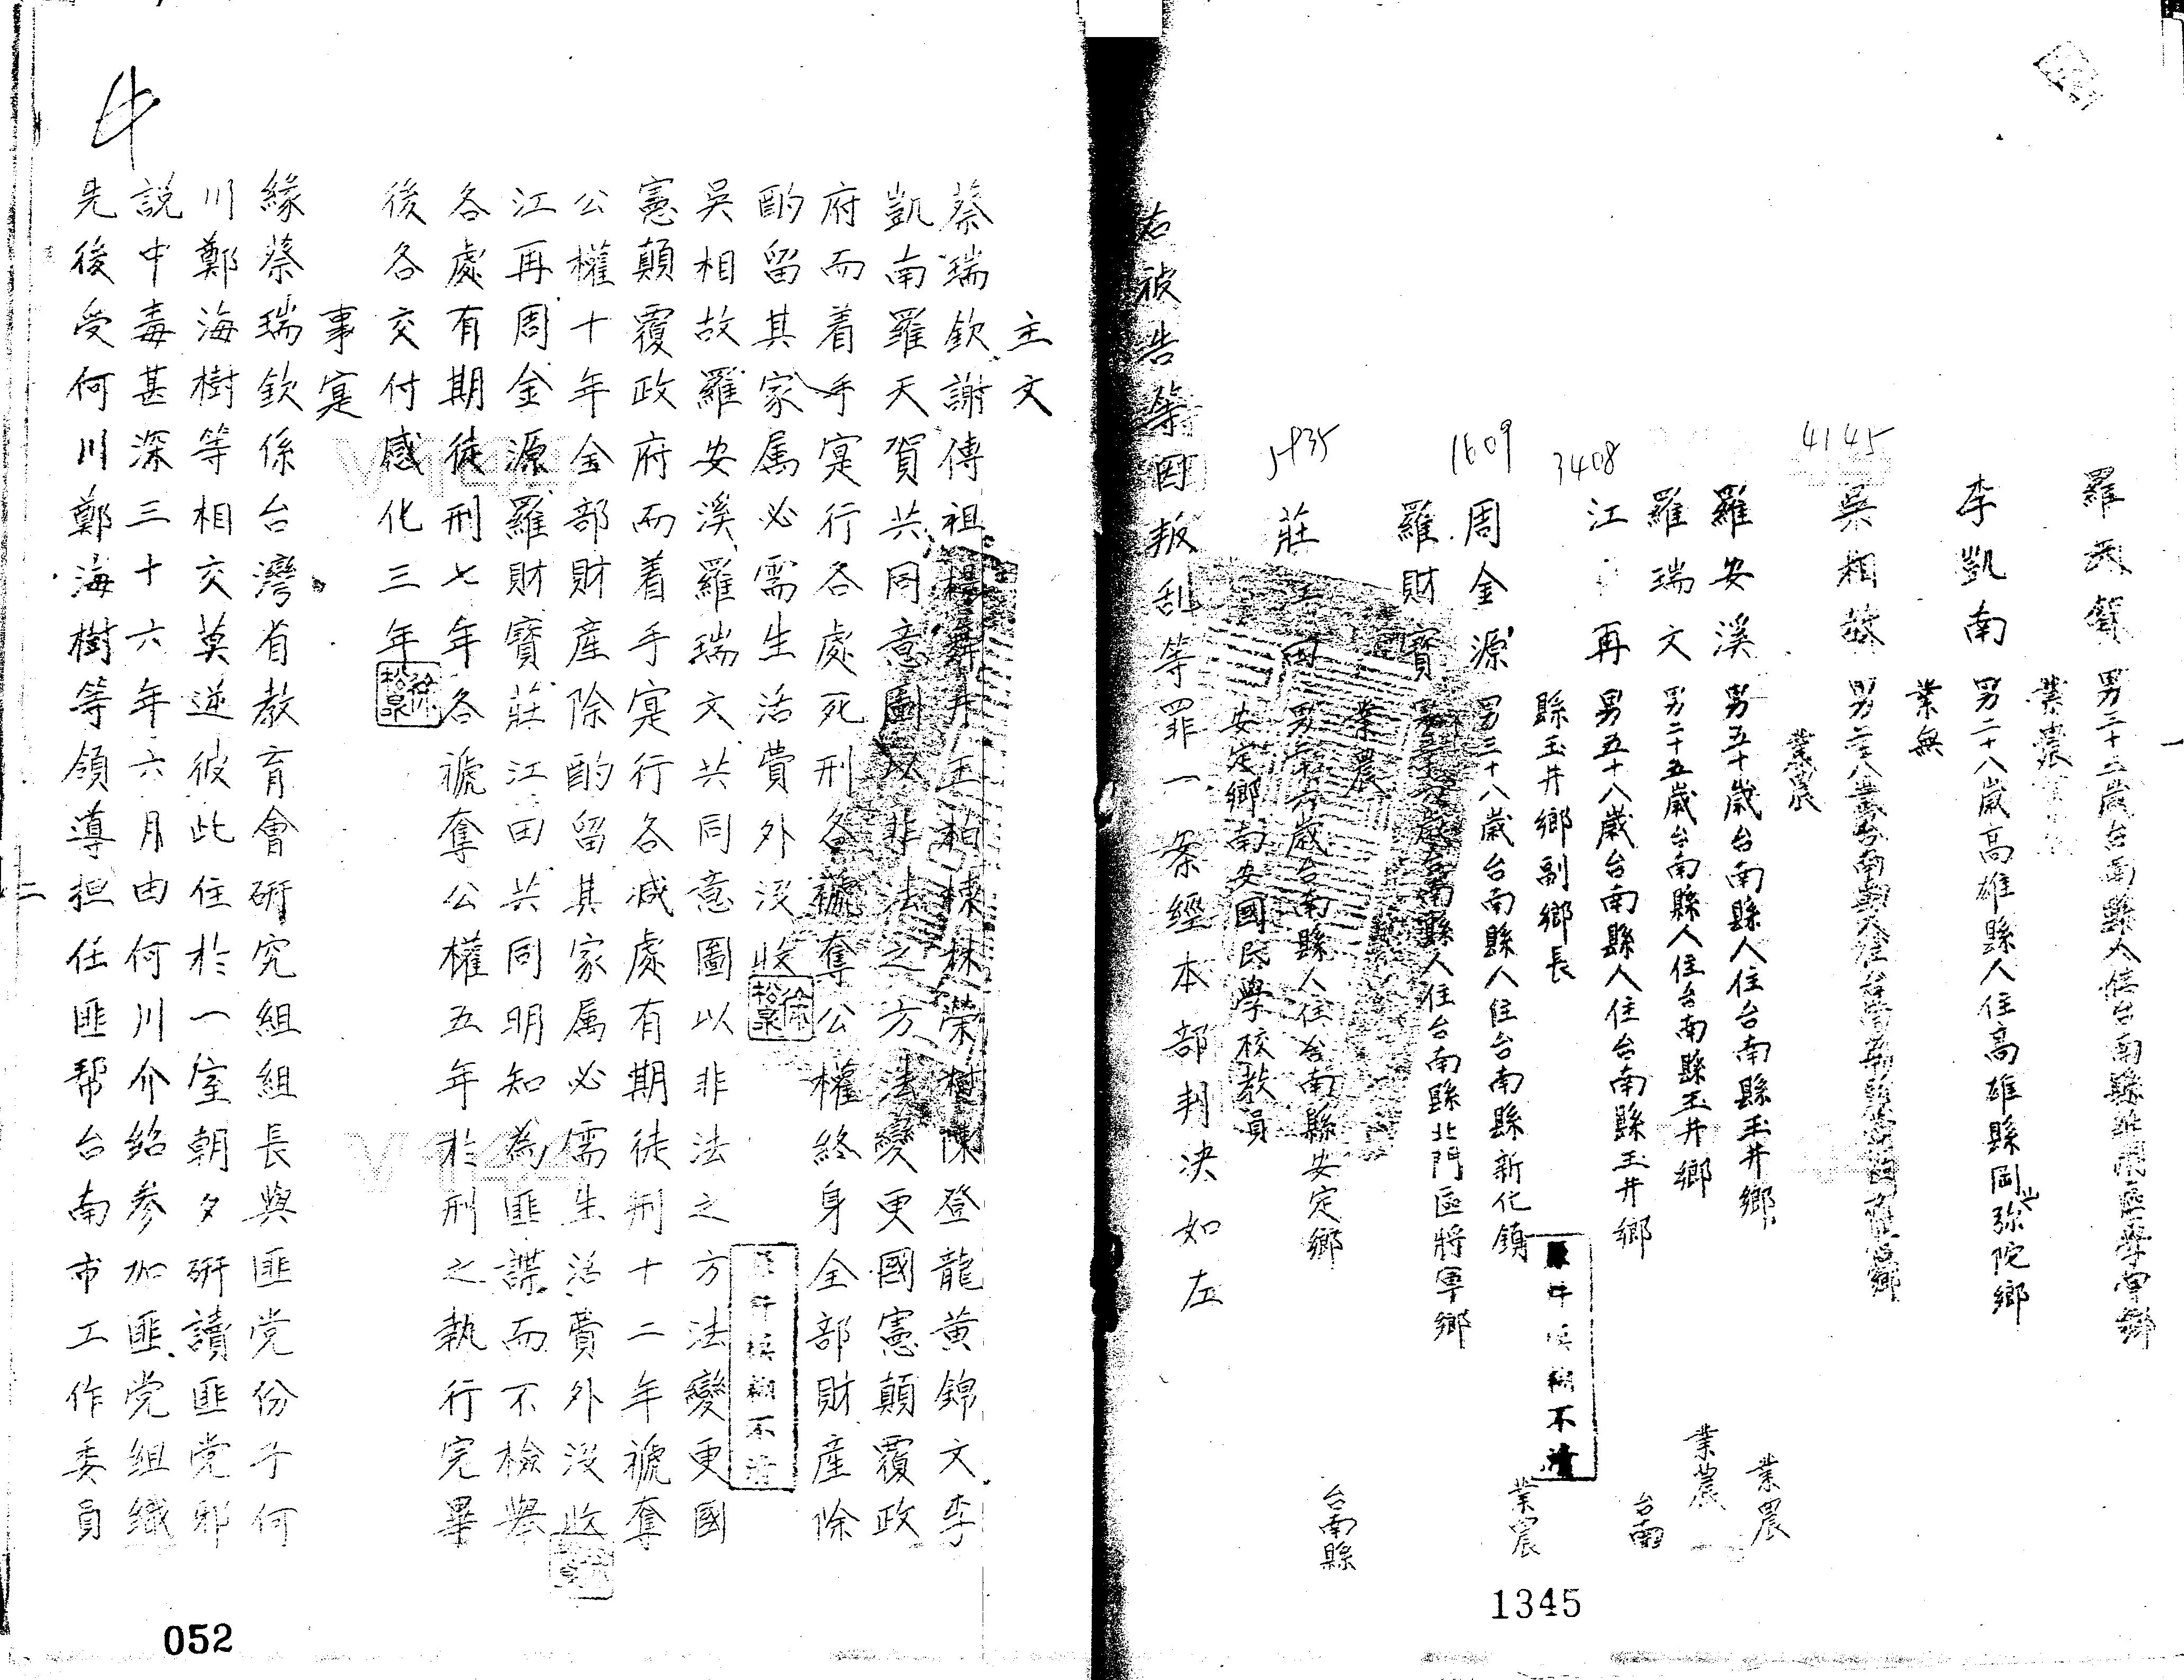 羅天賀 男三十二歲台南縣人住台南縣北門區學甲鄉
業農
李凱南 男二十八歲高雄縣人住高雄縣岡山弥陀鄉
業無
4145
吳相故
業農
羅安溪 男五十歲台南縣人住台南縣玉井鄉
業農
羅瑞文 男二十五歲台南縣人住台南縣玉井鄉
業農
3408
江再 男五十八歲台南縣人住台南縣玉井鄉 台南
縣玉井鄉副鄉長
1609
周金源 男三十八歲台南縣人住台南縣新化鎮 業農
羅財寶 台南縣人住台南縣北門區將軍鄉
業農
莊江田 男二十六歲台南縣人住台南縣安定鄉 台南縣
安定鄉南安國民學校教員
右被告等因叛乱等罪一案經本部判決如左
原件模糊不清
1345
主文
蔡瑞欽謝傳祖楊舞井王柏棟林榮樹陳登龍黃錦文李
凱南羅天賀共同意圖以非法之方法變更國憲顛覆政
府而着手实行各處死刑各褫奪公權終身全部財產除
酌留其家属必需生活費外沒收
原件模糊不清
吳相故羅安溪羅瑞文共同意圖以非法之方法變更國
憲顛覆政府而着手实行各減處有期徒刑十二年褫奪
公權十年全部財產除酌留其家属必需生活費外沒收
江再周金源羅財寶莊江田共同明知為匪諜而不檢舉
各處有期徒刑七年各褫奪公權五年於刑之執行完畢
後各交付感化三年
事実
緣蔡瑞欽係台灣省教育會研究組組長與匪党份子何
川鄭海樹等相交莫逆彼此住於一室朝夕研讀匪党邪
說中毒甚深三十六年六月由何川介紹參加匪党組織
先後受何川鄭海樹等領導担任匪帮台南市工作委員
二
052